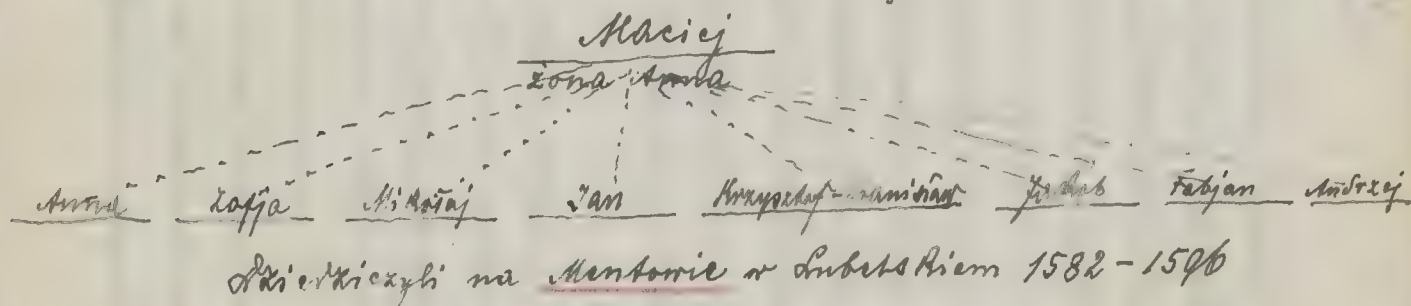 Maciej
żona Anna
Anna Zofja Mikołaj Jan Krzysztof Jakób Fabjan Andrzej
Dziedziczyli na Mentowie w Lubelskiem 1582-1596